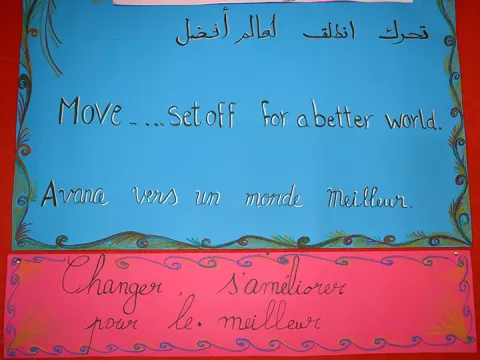 تحرك انطلق لعالم أفضل
Move.....set off for a better world.
Avance vers un monde meilleur.
Changer, s'améliorer
pour le meilleur